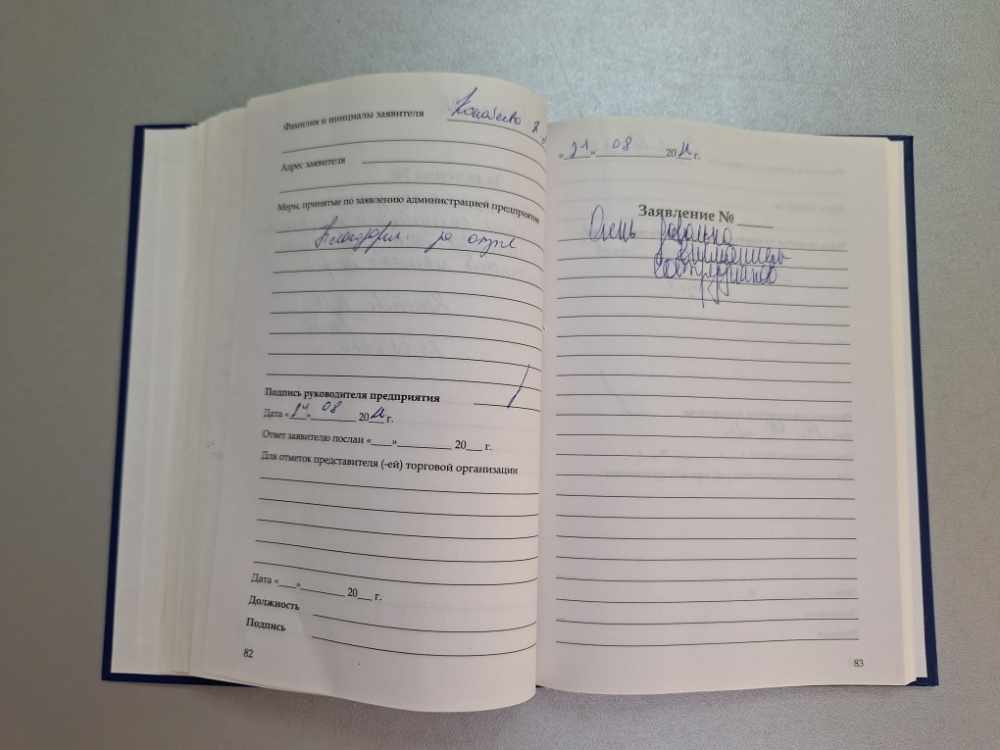 Фамилия и инициалы заявителя
Адрес заявителя
Меры, принятые по заявлению администрацией предприятия
за отзыв
Подпись руководителя предприятия
Дата « » 08 20 г.
Ответ заявителю послан «___»__________ 20___ г.
Для отметок представителя (-ей) торговой организации
Дата «___»________ 20___ г.
Должность
Подпись
82
«21» 08 20 г.
Заявление № ____
Очень довольна
сотрудников
83